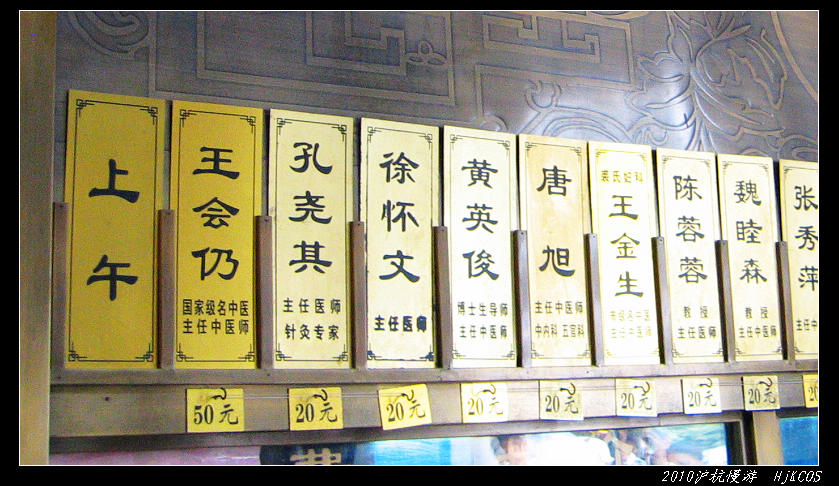 上午
王会仍
国家级名中医
主任中医师
50元
孔尧其
主任医师
针灸专家
20元
徐怀文
主任医师
20元
黄英俊
博士生导师
主任中医师
20元
唐旭
主任中医师
中内科 五官科
20元
裘氏妇科
王金生
市级名中医
主任中医师
20元
陈蓉蓉
教授
主任医师
20元
魏睦森
教授
主任中医师
20元
张秀萍
主任中
2010沪杭慢游 HjKCOS